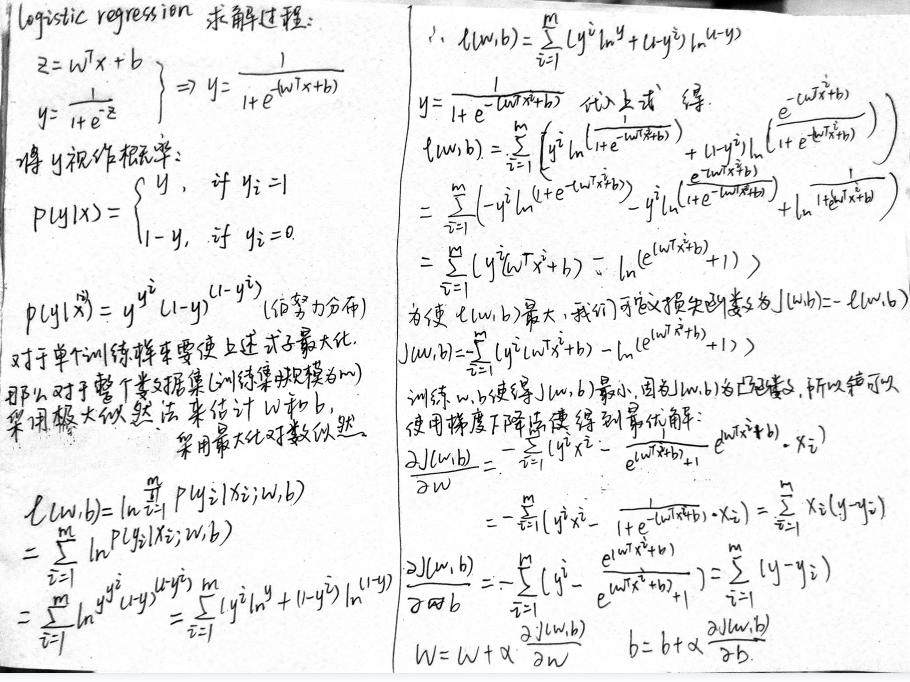 logistic regression 求解过程:
z = wᵀx + b
y = 1/(1+e^{-z}) } ⇒ y = 1/(1+e^{-(wᵀx+b)})
将y视作概率:
p(y|x) = { y, if y_i = 1
1-y, if y_i = 0
p(y|x^{(i)}) = y^{y^i} (1-y)^{(1-y^i)} (伯努力分布)
对于单个训练样本要使上述式子最大化.
那么对于整个数据集(训练集规模为m)
采用极大似然法来估计w和b,
采用最大化对数似然.
ℓ(w,b) = ln ∏_{i=1}^{m} p(y_i|x_i;w,b)
= ∑_{i=1}^{m} ln^{p(y_i|x_i;w,b)}
= ∑_{i=1}^{m} ln^{y^{y^i}(1-y)^{(1-y^i)}} = ∑_{i=1}^{m} (y^i ln^y + (1-y^i) ln^{(1-y)}
∴ ℓ(w,b) = ∑_{i=1}^{m} (y^i ln^y + (1-y^i) ln^{(1-y)}
y = 1/(1+e^{-(wᵀx^i+b)}) 代入上式 得
ℓ(w,b) = ∑_{i=1}^{m} (y^i ln^{(1/(1+e^{-(wᵀx^i+b)}))} + (1-y^i) ln^{(e^{-(wᵀx^i+b)}/(1+e^{-(wᵀx^i+b)}))})
= ∑_{i=1}^{m} (-y^i ln^{(1+e^{-(wᵀx^i+b)})} - y^i ln^{(e^{-(wᵀx^i+b)}/(1+e^{-(wᵀx^i+b)}))} + ln^{1/(1+e^{(wᵀx^i+b)})})
= ∑_{i=1}^{m} (y^i(wᵀx^i+b) - ln^{(e^{(wᵀx^i+b)}+1)})
为使ℓ(w,b)最大,我们可定义损失函数为J(w,b)=-ℓ(w,b)
J(w,b) = -∑_{i=1}^{m} (y^i(wᵀx^i+b) - ln^{(e^{(wᵀx^i+b)}+1)})
训练w,b使得J(w,b)最小,因为J(w,b)为凸函数,所以可以
使用梯度下降法得到最优解:
∂J(w,b)/∂w = -∑_{i=1}^{m} (y^i x^i - 1/(e^{(wᵀx^i+b)}+1) e^{(wᵀx^i+b)} · x_i)
= -∑_{i=1}^{m} (y^i x^i - 1/(1+e^{-(wᵀx^i+b)}) · x_i) = ∑_{i=1}^{m} x_i(y-y_i)
∂J(w,b)/∂b = -∑_{i=1}^{m} (y^i - e^{(wᵀx^i+b)}/(e^{(wᵀx^i+b)}+1)) = ∑_{i=1}^{m} (y-y_i)
w = w + α ∂J(w,b)/∂w b = b + α ∂J(w,b)/∂b.